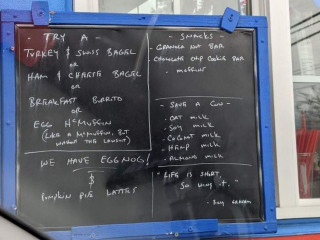 - TRY A -
TURKEY & SWISS BAGEL
OR
HAM & CHEESE BAGEL
OR
BREAKFAST BURRITO
OR
EGG McMUFFIN
(LIKE A McMUFFIN, BUT
WITHOUT THE LAWSUIT)
WE HAVE EGGNOG!
&
PUMPKIN PIE LATTES
- SNACKS -
- GRANOLA NUT BAR
- CHOCOLATE CHIP COOKIE BAR
- MUFFINS
- SAVE A COW -
- OAT MILK
- SOY MILK
- COCONUT MILK
- HEMP MILK
- ALMOND MILK
"LIFE IS SHORT.
SO IT."
- GRAHAM